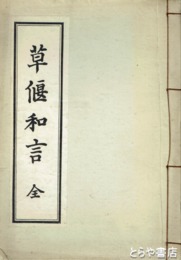 草偃和言 全
© とらや書店